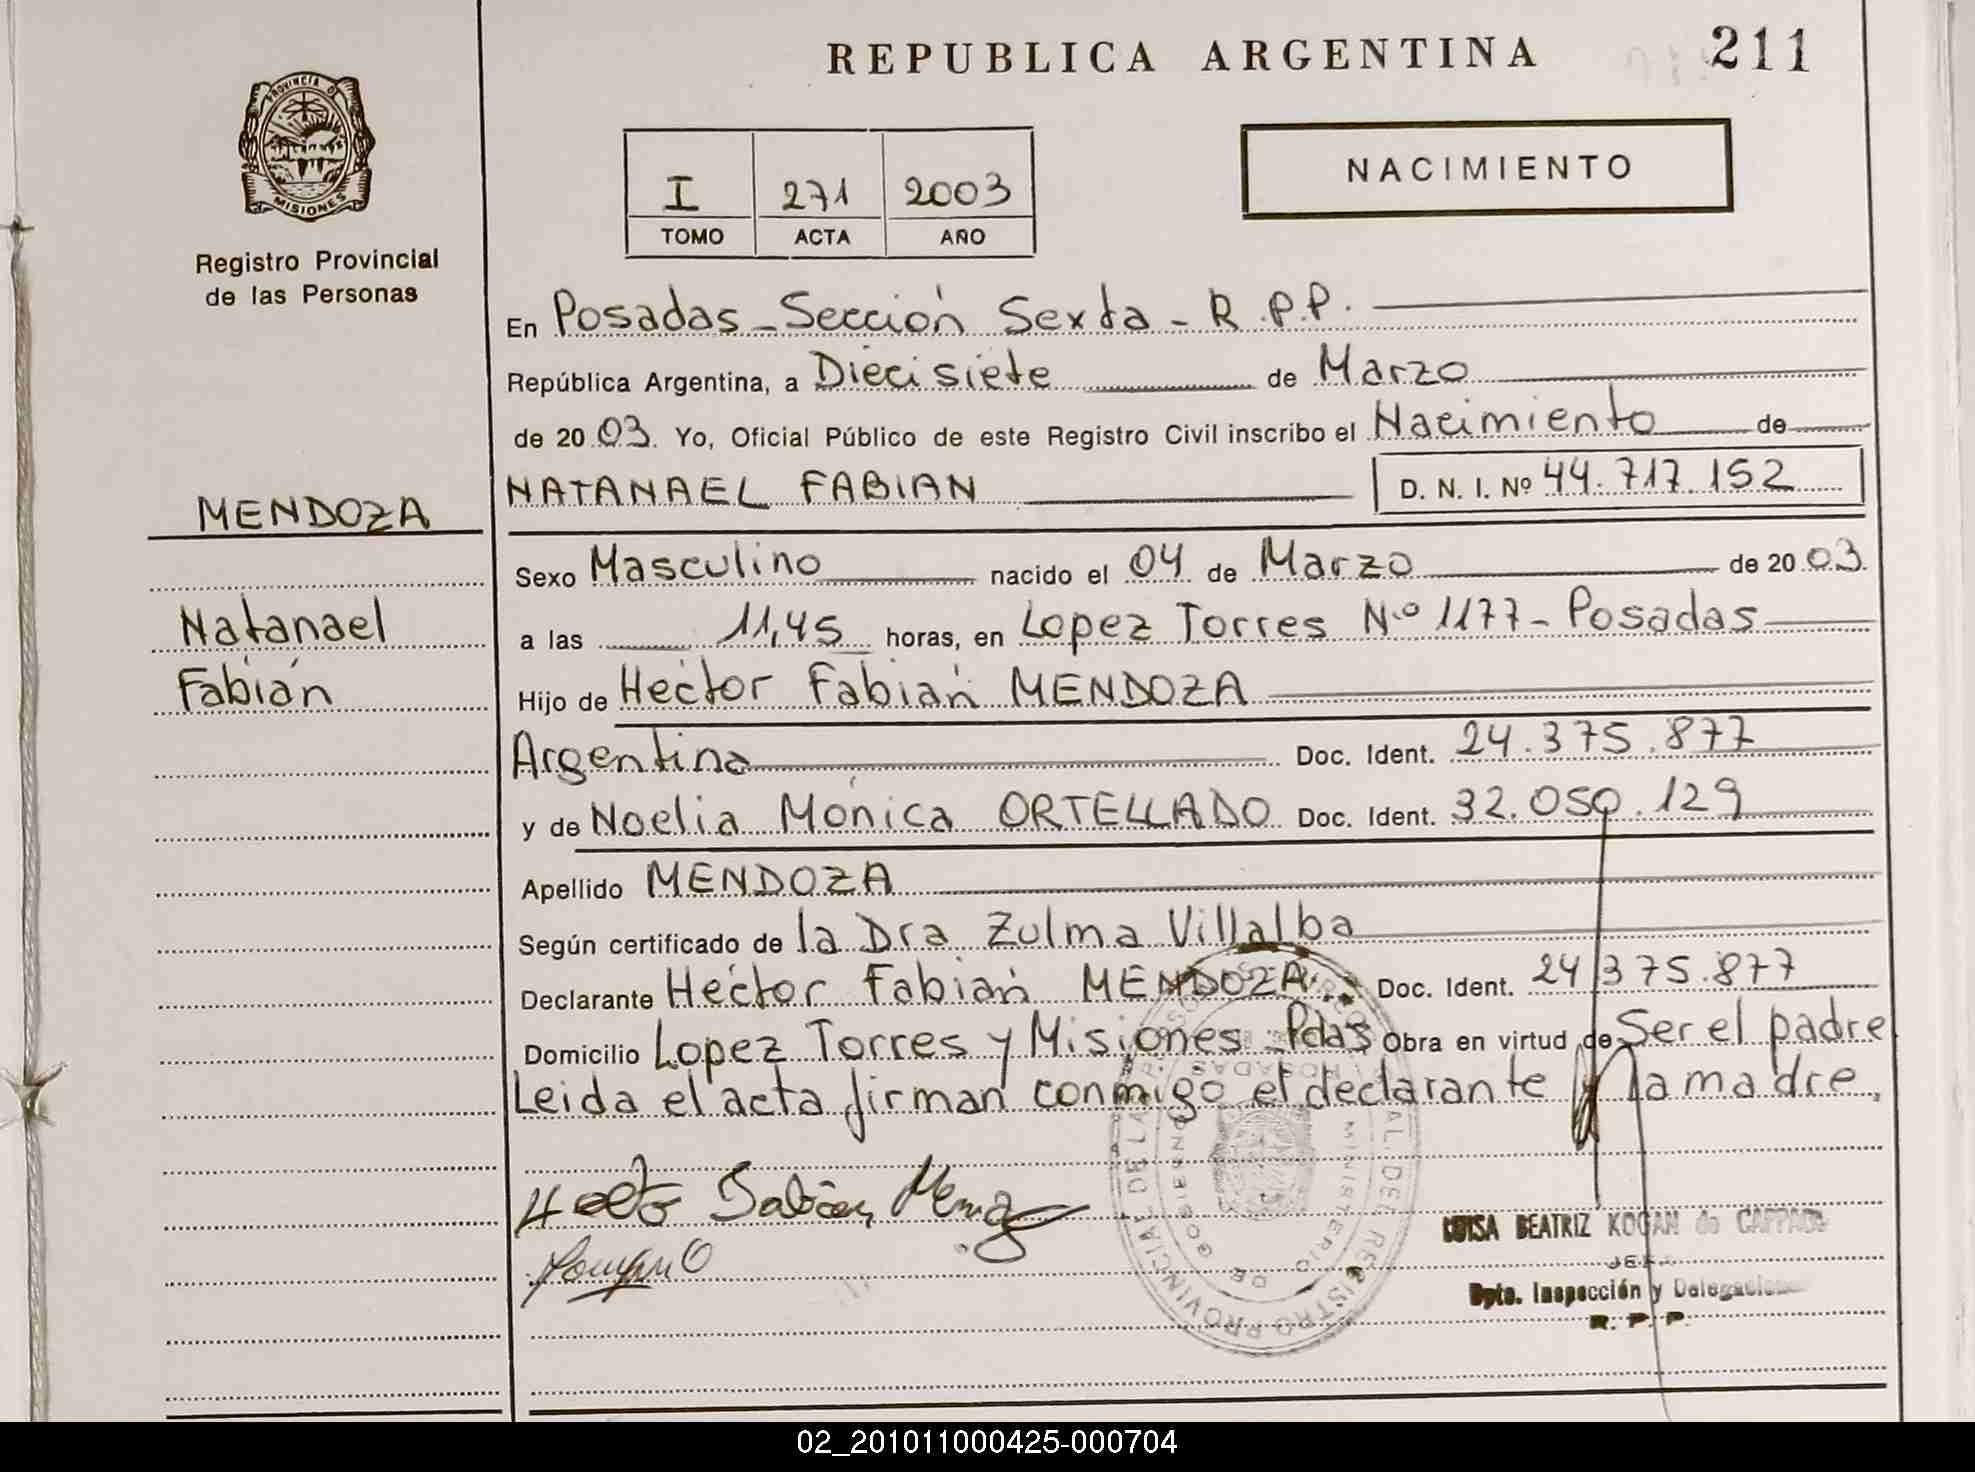 REPUBLICA ARGENTINA
211
PROVINCIA D
MISIONES
Registro Provincial
de las Personas
I 271 2003
TOMO ACTA AÑO
NACIMIENTO
En Posadas - Sección Sexta - R.P.P.
República Argentina, a Diecisiete de Marzo
de 2003. Yo, Oficial Público de este Registro Civil inscribo el Nacimiento de
MENDOZA
NATANAEL FABIAN D. N. I. Nº 44.717.152
Sexo Masculino nacido el 04 de Marzo de 2003.
Natanael
a las 11,45 horas, en Lopez Torres Nº 1177 - Posadas
Fabián
Hijo de Hector Fabián MENDOZA
Argentina Doc. Ident. 24.375.877
y de Noelia Mónica ORTELLADO Doc. Ident. 32.050.129
Apellido MENDOZA
Según certificado de la Dra Zulma Villalba
Declarante Héctor Fabián MENDOZA Doc. Ident. 24 375.877
Domicilio Lopez Torres y Misiones - Pdas Obra en virtud de Ser el padre
Leida el acta firman conmigo el declarante y la madre.
LUISA BEATRIZ KOGAN de
JEFA
Dpto. Inspección y Delegaciones
R. P. P.
02_201011000425-000704